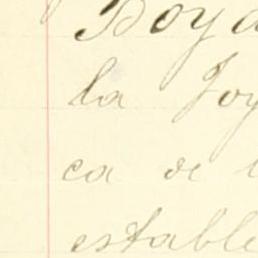 Boya
la Joy
ca de l
estable